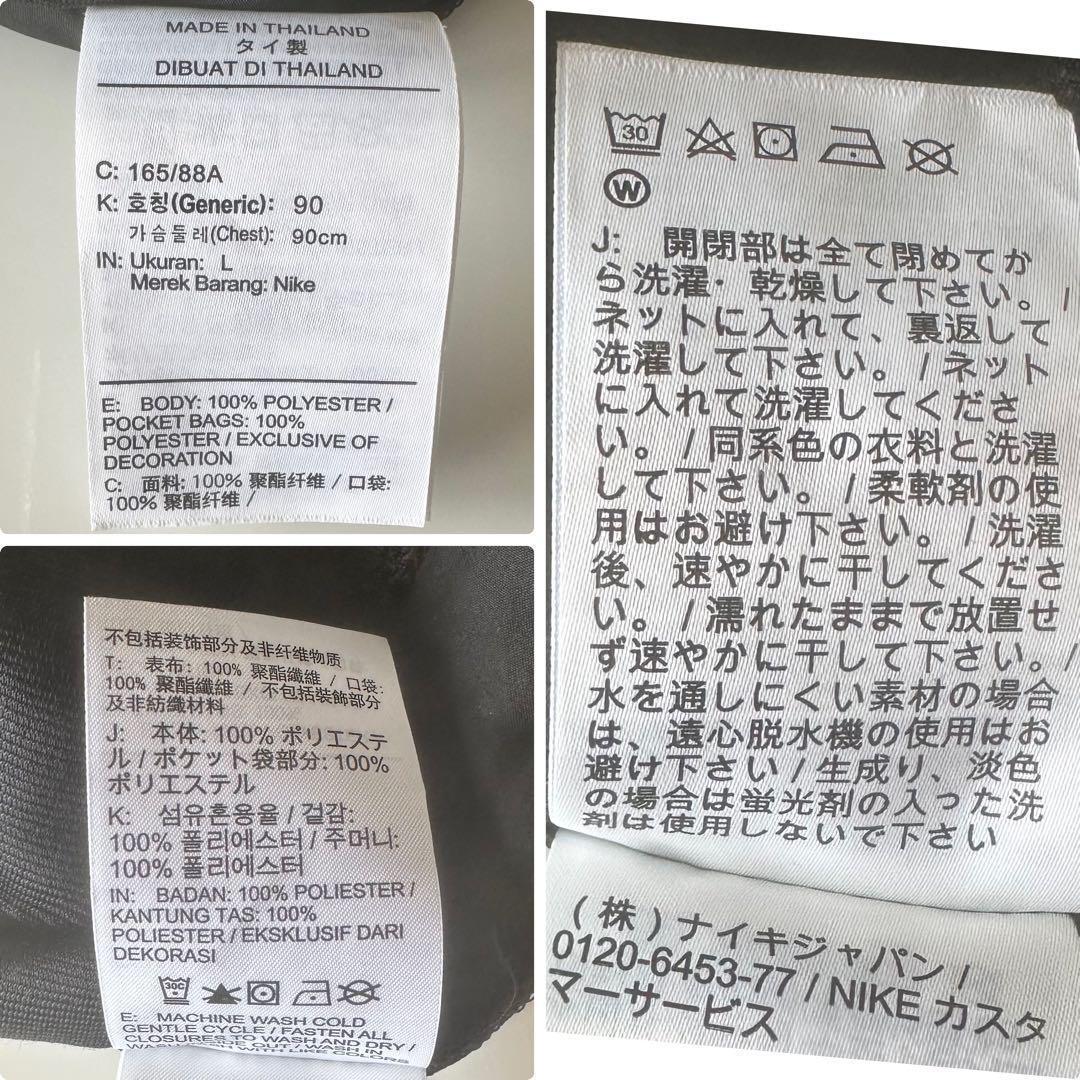 MADE IN THAILAND
タイ製
DIBUAT DI THAILAND
C: 165/88A
K: 호칭(Generic): 90
가슴둘레(Chest): 90cm
IN: Ukuran: L
Merek Barang: Nike
E: BODY: 100% POLYESTER /
POCKET BAGS: 100%
POLYESTER / EXCLUSIVE OF
DECORATION
C: 面料: 100% 聚酯纤维 / 口袋:
100% 聚酯纤维 /
不包括装饰部分及非纤维物质
T: 表布: 100% 聚酯纖維 / 口袋:
100% 聚酯纖維 / 不包括裝飾部分
及非紡織材料
J: 本体: 100% ポリエステ
ル / ポケット袋部分: 100%
ポリエステル
K: 섬유혼용율 / 겉감:
100% 폴리에스터 / 주머니:
100% 폴리에스터
IN: BADAN: 100% POLIESTER /
KANTUNG TAS: 100%
POLIESTER / EKSKLUSIF DARI
DEKORASI
30C
E: MACHINE WASH COLD
GENTLE CYCLE / FASTEN ALL
CLOSURES TO WASH AND DRY /
WASH INSIDE OUT / WASH IN
WITH LIKE COLORS
30
W
J: 開閉部は全て閉めてか
ら洗濯・乾燥して下さい。 /
ネットに入れて、裏返して
洗濯して下さい。 / ネット
に入れて洗濯してくださ
い。 / 同系色の衣料と洗濯
して下さい。 / 柔軟剤の使
用はお避け下さい。 / 洗濯
後、速やかに干してくださ
い。 / 濡れたままで放置せ
ず速やかに干して下さい。 /
水を通しにくい素材の場合
は、遠心脱水機の使用はお
避け下さい / 生成り、淡色
の場合は蛍光剤の入った洗
剤は使用しないで下さい
(株) ナイキジャパン /
0120-6453-77 / NIKE カスタ
マーサービス